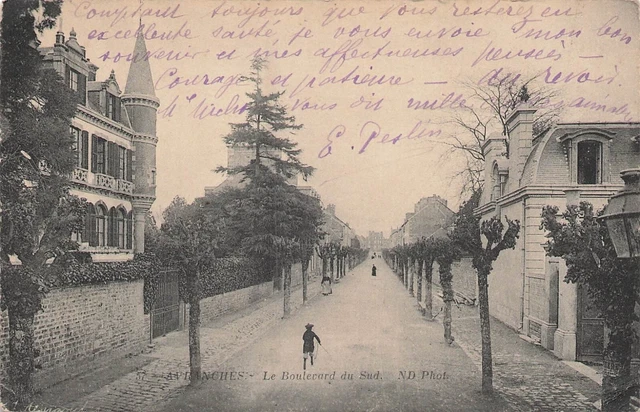 Comptant toujours que vous resterez en
excellente santé, je vous envoie mon bon
souvenir et mes affectueuses pensées —
Courage et patience — au revoir
vous dit mille
E.
AVRANCHES - Le Boulevard du Sud. ND Phot.